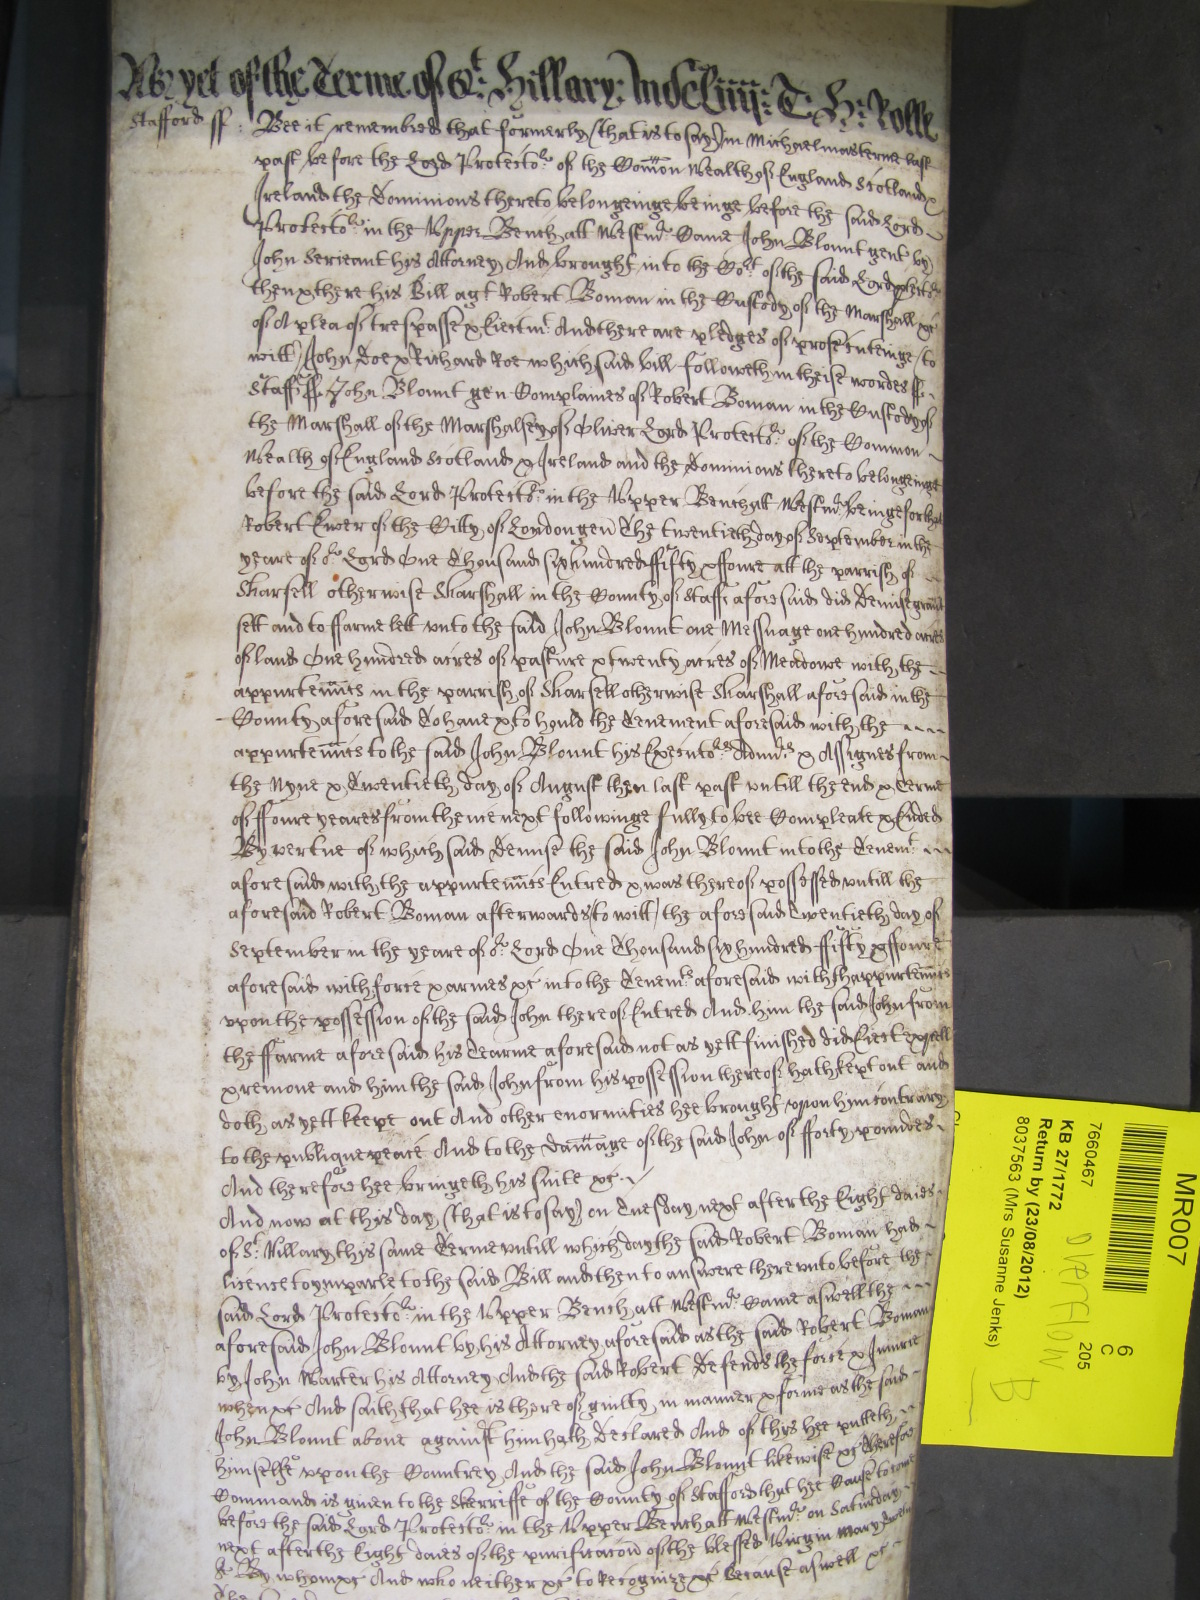 As yet of the Terme of St: Hillary: 1654: T: H: Rolle
Stafford ss: Bee it remembred that formerly (that is to say) in Michaelmas terme last
past before the Lord Protector of the Com̄on Wealth of England Scotland &
Ireland the Dominions thereto belongeinge beinge before the said Lord
Protector in the Upper Bench att Westmr. Came John Blount gent by
John Serieant his Attorney And brought into the Cort of the said Lord Protector
then & there his Bill agt Robert Boman in the Custody of the Marshall &c
of A plea of trespasse & Eiectmt. And there are pledges of prosecuteinge (to
witt) John Doe & Richard Roe which said bill followeth in theise wordes ss.
Staff ss John Blount gen Complaines of Robert Boman in the Custody of
the Marshall of the Marshalsey of Oliver Lord Protector of the Common
Wealth of England Scotland & Ireland and the Dominions thereto belongeinge
before the said Lord Protector in the Upper Bench att Westmr. beinge for that
Robert Ewer of the Citty of London gen The twentieth day of September in the
yeare of or Lord One Thousand six hundred ffifty & ffoure att the parrish of
Sharsell otherwise Sharshall in the County of Staff aforesaid did Demise graunt
sett and to ffarme lett unto the said John Blount one Messuage one hundred acres
of land One hundred acres of pasture & twenty acres of Meadowe with the
appurten̄nces in the parrish of Sharsell otherwise Sharshall aforesaid in the
County aforesaid To have & to hould the Tenement aforesaid with the
appurten̄nces to the said John Blount his Executors Admrs & Assignes from
the Nyne & Twentieth day of August then last past untill the end & Terme
of ffoure yeares from thence next followinge fully to bee Compleate & Ended
By vertue of which said Demise the said John Blount into the Tenemt
aforesaid with the appurten̄nces Entred & was thereof possessed untill the
aforesaid Robert Boman afterwards (to witt) the aforesaid Twentieth day of
September in the yeare of or Lord One Thousand six hundred ffifty & ffoure
aforesaid with force & armes &c into the Tenemts aforesaid with thappurten̄nces
upon the possession of the said John thereof Entred And him the said John from
the ffarme aforesaid his Tearme aforesaid not as yett finished did Eiect expell
& remove and him the said John from his possession thereof hath kept out and
doth as yett keepe out And other enormities hee brought upon him contrary
to the publique peace And to the dam̄age of the said John of fforty poundes
And therefore hee bringeth his suite &c.
And now at this day (that is to say) on Tuesday next after the Eight daies
of St. Hillary this same Terme untill which day the said Robert Boman had
licence to imparle to the said Bill and then to answere thereunto before the
said Lord Protector in the Upper Bench att Westmr. Came aswell the
aforesaid John Blount by his Attorney aforesaid as the said Robert Boman
by John Warter his Attorney And the said Robert Defends the force & Iniurie
when &c And saith that hee is there of guilty in manner & forme as the said
John Blount above against him hath Declared And of this hee putteth
himselfe upon the Countrey And the said John Blount likewise &c Therefore
Command is given to the Sherriffe of the County of Stafford that hee Cause to come
before the said Lord Protector in the Upper Bench att Westmr. on Saturday
next after the Eight daies of the purificacon of the blessed Virgin Mary
By whom &c And who neither &c to Recognize &c because aswell &c
MR007
6
C
205
7660467
OVERFLOW
KB 27/1772
Return by (23/08/2012)
8037563 (Mrs Susanne Jenks)
B